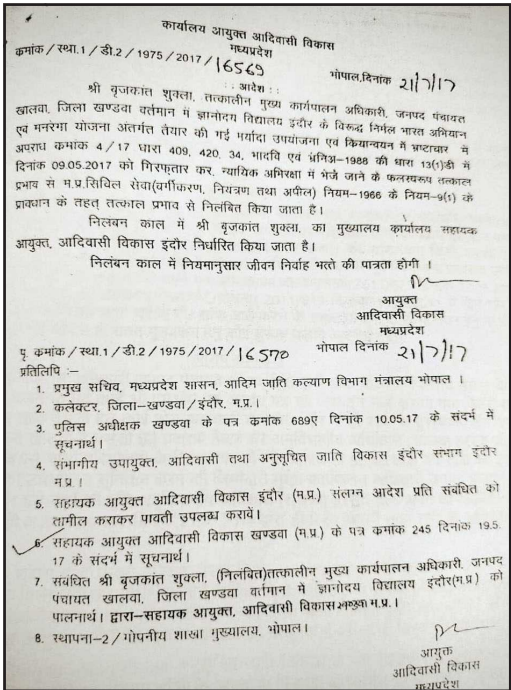 कार्यालय आयुक्त आदिवासी विकास
मध्यप्रदेश
कमांक / स्था.1 / डी.2 / 1975 / 2017 / 16569
भोपाल,दिनांक 21/7/17
:: आदेश ::
श्री बृजकांत शुक्ला, तत्कालीन मुख्य कार्यपालन अधिकारी, जनपद पंचायत
खालवा, जिला खण्डवा वर्तमान में ज्ञानोदय विद्यालय इंदौर के विरूद्ध निर्मल भारत अभियान
एवं मनरेगा योजना अंतर्गत तैयार की गई मर्यादा उपयोजना एवं क्रियान्वयन में भ्रष्टाचार में
अपराध कमांक 4/17 धारा 409, 420, 34, भादवि एवं भ्रनिअ-1988 की धारा 13(1)डी में
दिनांक 09.05.2017 को गिरफ्तार कर, न्यायिक अभिरक्षा में भेजे जाने के फलस्वरूप तत्काल
प्रभाव से म.प्र.सिविल सेवा(वर्गीकरण, नियंत्रण तथा अपील) नियम-1966 के नियम-9(1) के
प्रावधान के तहत् तत्काल प्रभाव से निलंबित किया जाता है।
निलबन काल में श्री बृजकांत शुक्ला, का मुख्यालय कार्यालय सहायक
आयुक्त, आदिवासी विकास इंदौर निर्धारित किया जाता है।
निलंबन काल में नियमानुसार जीवन निर्वाह भत्ते की पात्रता होगी ।
आयुक्त
आदिवासी विकास
मध्यप्रदेश
पृ. कमांक / स्था.1 / डी.2 / 1975 / 2017 / 16570
भोपाल दिनांक 21/7/17
प्रतिलिपि :–
1. प्रमुख सचिव, मध्यप्रदेश शासन, आदिम जाति कल्याण विभाग मंत्रालय भोपाल ।
2. कलेक्टर, जिला-खण्डवा / इंदौर, म.प्र.।
3. पुलिस अधीक्षक खण्डवा के पत्र कमांक 689ए दिनांक 10.05.17 के संदर्भ में
सूचनार्थ।
4. संभागीय उपायुक्त, आदिवासी तथा अनुसूचित जाति विकास इंदौर संभाग इंदौर
म.प्र.।
5. सहायक आयुक्त आदिवासी विकास इंदौर (म.प्र.) संलग्न आदेश प्रति संबंधित को
तामील कराकर पावती उपलब्ध करावें।
6. सहायक आयुक्त आदिवासी विकास खण्डवा (म.प्र.) के पत्र कमांक 245 दिनांक 19.5.
17 के संदर्भ में सूचनार्थ।
7. संबंधित श्री बृजकांत शुक्ला, (निलंबित)तत्कालीन मुख्य कार्यपालन अधिकारी, जनपद
पंचायत खालवा, जिला खण्डवा वर्तमान में ज्ञानोदय विद्यालय इंदौर(म.प्र.) को
पालनार्थ। द्वारा-सहायक आयुक्त, आदिवासी विकास म.प्र.।
8. स्थापना-2 / गोपनीय शाखा मुख्यालय, भोपाल।
आयुक्त
आदिवासी विकास
मध्यप्रदेश